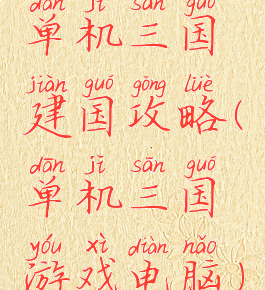 dān jī sān guó
单机三国
jiàn guó gōng lüè
建国攻略(
dān jī sān guó
单机三国
yóu xì diàn nǎo
游戏电脑)